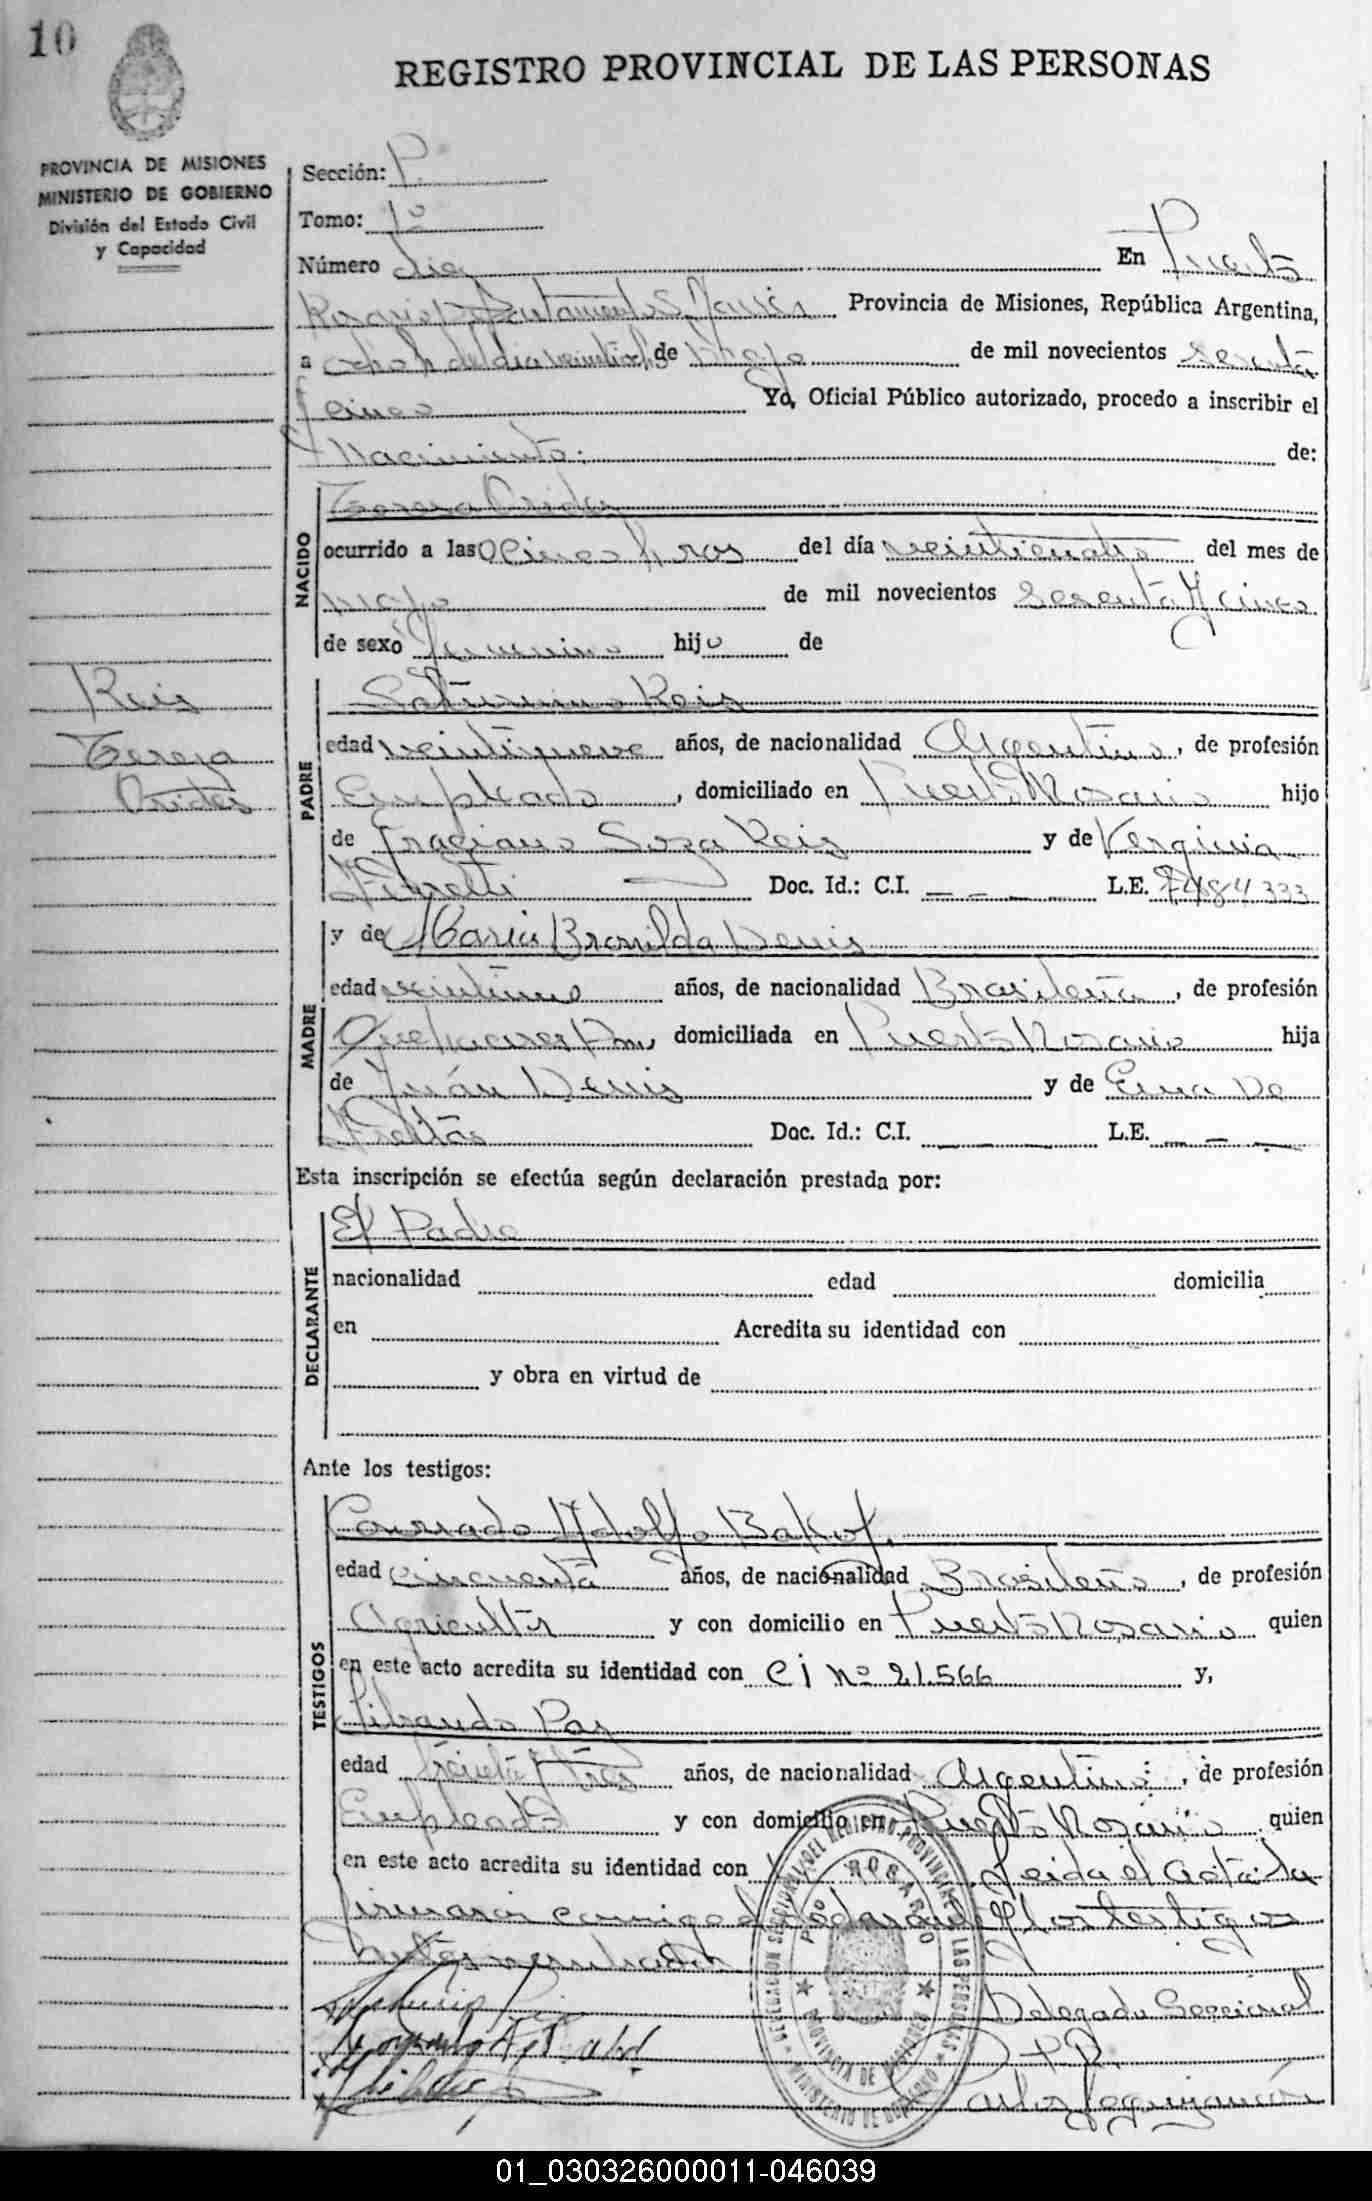 10
REGISTRO PROVINCIAL DE LAS PERSONAS
PROVINCIA DE MISIONES
MINISTERIO DE GOBIERNO
División del Estado Civil
y Capacidad
Sección: P.
Tomo: 1º
Número diez En Puerto
Rosario Provincia de Misiones, República Argentina,
a ocho h. del dia de Mayo de mil novecientos sesenta
y cinco Yo, Oficial Público autorizado, procedo a inscribir el
Nacimiento: de:
NACIDO
Tereza
ocurrido a las cinco hras del día veinticuatro del mes de
mayo de mil novecientos sesenta y cinco
de sexo femenino hijo de
Reis
Tereza
PADRE
Saturnino Reis
edad veintinueve años, de nacionalidad Argentino, de profesión
Empleado, domiciliado en Puerto Rosario hijo
de Graciano Soza Reis y de Verginia
Doc. Id.: C.I. — — — L.E. 7484333
MADRE
y de Maria Bronilda Denis
edad años, de nacionalidad Brasileña, de profesión
Quehaceres Dom, domiciliada en Puerto Rosario hija
de Juán Denis y de Ema De
Freitas Doc. Id.: C.I. L.E. — — —
Esta inscripción se efectúa según declaración prestada por:
DECLARANTE
El Padre
nacionalidad edad domicilia
en Acredita su identidad con
y obra en virtud de
Ante los testigos:
TESTIGOS
Conrado Adolfo Bakof.
edad cincuenta años, de nacionalidad Brasileño, de profesión
Agricultor y con domicilio en Puerto Rosario quien
en este acto acredita su identidad con C i Nº 21.566 y,
Libando Paz
edad treinta y tres años, de nacionalidad Argentino, de profesión
Empleado y con domicilio en Puerto Rosario quien
en este acto acredita su identidad con Leida el acta la
firmaron conmigo el declarante y los testigos
Delegado Seccional
DELEGACION SECCIONAL DEL REGISTRO PROVINCIAL DE LAS PERSONAS
MINISTERIO DE GOBIERNO
Pto ROSARIO
PROVINCIA DE MISIONES
Carlos Leguizamón
01_030326000011-046039